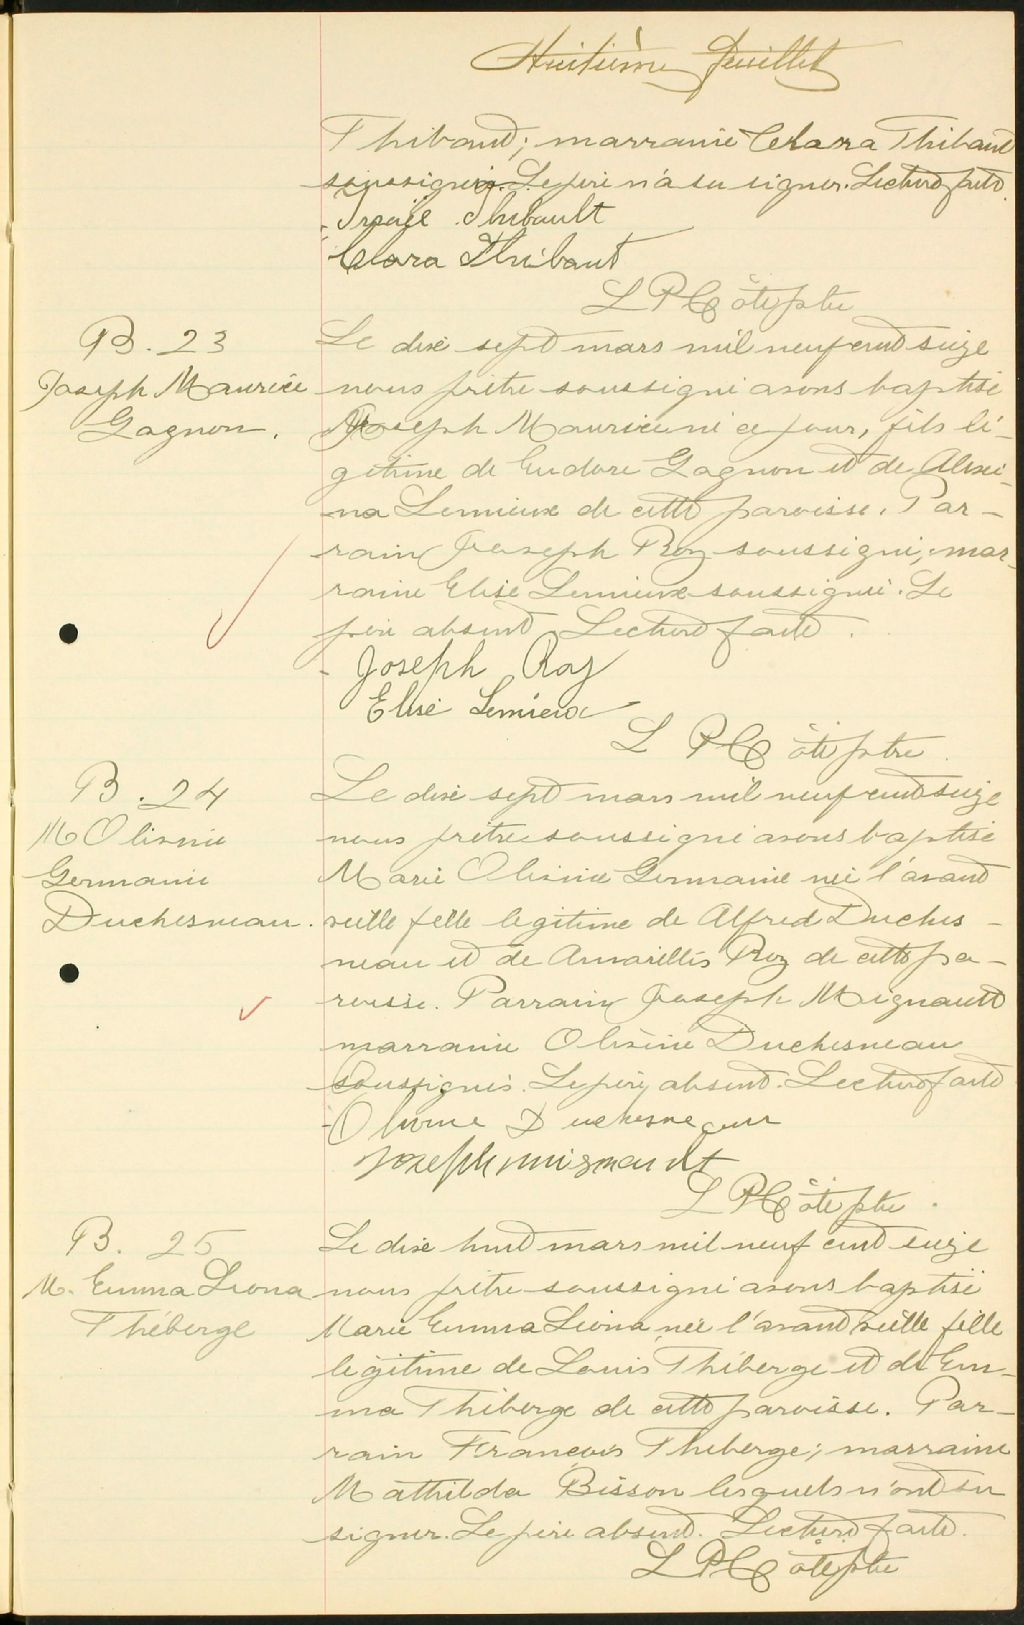 Huitième feuillet
Thibaud; marraine Clara Thibaud
soussignés. Le père n'a su signer. Lecture faite.
Thibault
Clara Thibaut
L P Côté ptre
B. 23
Joseph Maurice
Gagnon.
Le dix sept mars mil neuf cent seize
nous prêtre soussigné avons baptisé
Joseph Maurice né ce jour, fils lé-
gitime de Eudore Gagnon et de Alexi-
na Lemieux de cette paroisse. Par-
rain Joseph Roy soussigné; mar-
raine Elise Lemieux soussignée. Le
père absent. Lecture faite.
Joseph Roy
Elise Lemieux
L P Côté ptre
B. 24
M Olivine
Germaine
Duchesneau.
Le dix sept mars mil neuf cent seize
nous prêtre soussigné avons baptisé
Marie Olivine Germaine née l'avant
veille fille legitime de Alfred Duches-
neau et de Amarillis Roy de cette pa-
roisse. Parrain Joseph Mignault
marraine Olivine Duchesneau
soussignés. Le père absent. Lecture faite
Olivine Duchesneau
Joseph mignault
L P Côté ptre.
B. 25
M. Emma Liona
Théberge
Le dix huit mars mil neuf cent seize
nous prêtre soussigné avons baptisé
Marie Emma Liona née l'avant veille fille
légitime de Louis Théberge et de Em-
ma Théberge de cette paroisse. Par-
rain François Théberge; marraine
Mathilda Bisson lesquels n'ont su
signer. Le père absent. Lecture faite.
L P Côté ptre